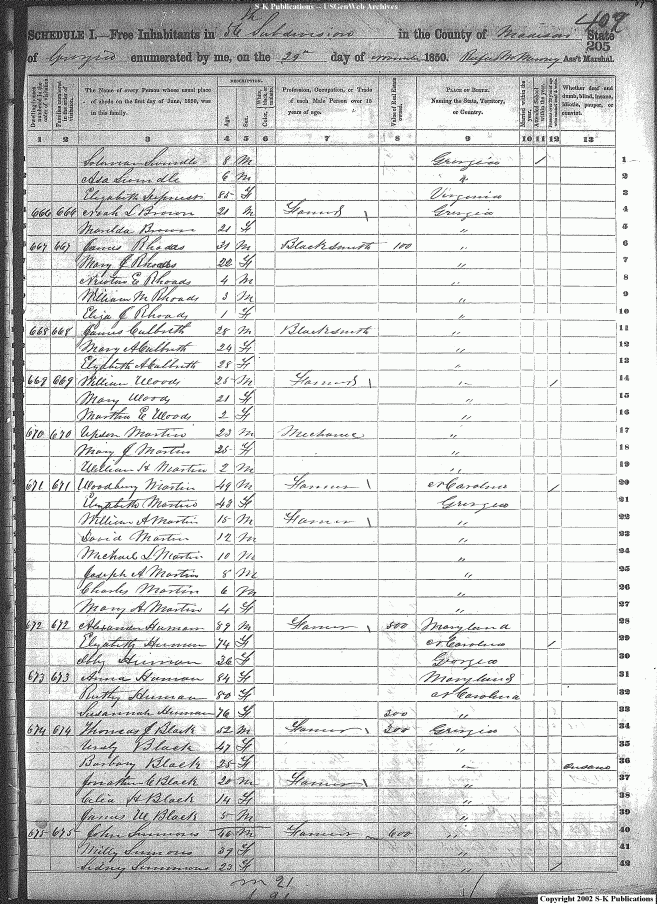 S-K Publications -- USGenWeb Archives
409
SCHEDULE I.—Free Inhabitants in 56th Subdivision in the County of Madison State
205
of Georgia enumerated by me, on the 29th day of November 1850. Ass't Marshal.
DESCRIPTION.
The Name of every Person whose usual place of abode on the first day of June, 1850, was in this family.
Age. Sex.
Profession, Occupation, or Trade of each Male Person over 15 years of age.
Value of Real Estate owned.
PLACE OF BIRTH. Naming the State, Territory, or Country.
Married within the year.
Attended School within the year.
Whether deaf and dumb, blind, insane, idiotic, pauper, or convict.
1 2 3 4 5 6 7 8 9 10 11 12 13
Solomon Swindle 8 M Georgia / 1
Asa Swindle 6 M " 2
Elizabeth 85 F Virginia 3
666 666 Noah L Brown 21 M Farmer \ Georgia 4
Matilda Brown 21 F " 5
667 667 James Rhodes 31 M Blacksmith 100 " 6
Mary J Rhodes 22 F " 7
E Rhoads 4 M " 8
William M Rhoads 3 M " 9
Eliza J Rhoads 1 F " 10
668 668 James Culbreth 28 M Blacksmith " 11
Mary A Culbreth 24 F " 12
Elizabeth A Culbreth 28 F " 13
669 669 William Woods 25 M Farmer \ " / 14
Mary Woods 21 F " 15
Martha E Woods 2 F " 16
670 670 Upson Martin 23 M Mechanic " 17
Mary J Martin 25 F " 18
William H Martin 2 M " 19
671 671 Woodbury Martin 49 M Farmer \ N Carolina / 20
Elizabeth Martin 43 F Georgia 21
William A Martin 15 M Farmer \ " 22
David Martin 12 M " 23
Michael L Martin 10 M " 24
Joseph A Martin 8 M " 25
Charles Martin 6 M " 26
Mary A Martin 4 F " 27
672 672 Alexander Human 89 M Farmer \ 800 Maryland 28
Elizabeth Human 74 F N Carolina / 29
Human 36 F Georgia 30
673 673 Anna Human 84 F Maryland 31
Ruthy Human 80 F N Carolina 32
Susannah Human 76 F 200 " 33
674 674 Thomas J Black 52 M Farmer \ 200 Georgia 34
Black 47 F " 35
Barbary Black 25 F " Insane 36
Jonathan C Black 20 M Farmer \ " 37
Celia H Black 14 F " 38
James W Black 5 M " 39
675 675 John Simmons 46 M Farmer 600 " 40
Milly Simmons 39 F " 41
Sidney Simmons 23 F " / 42
m 21
Copyright 2002 S-K Publications